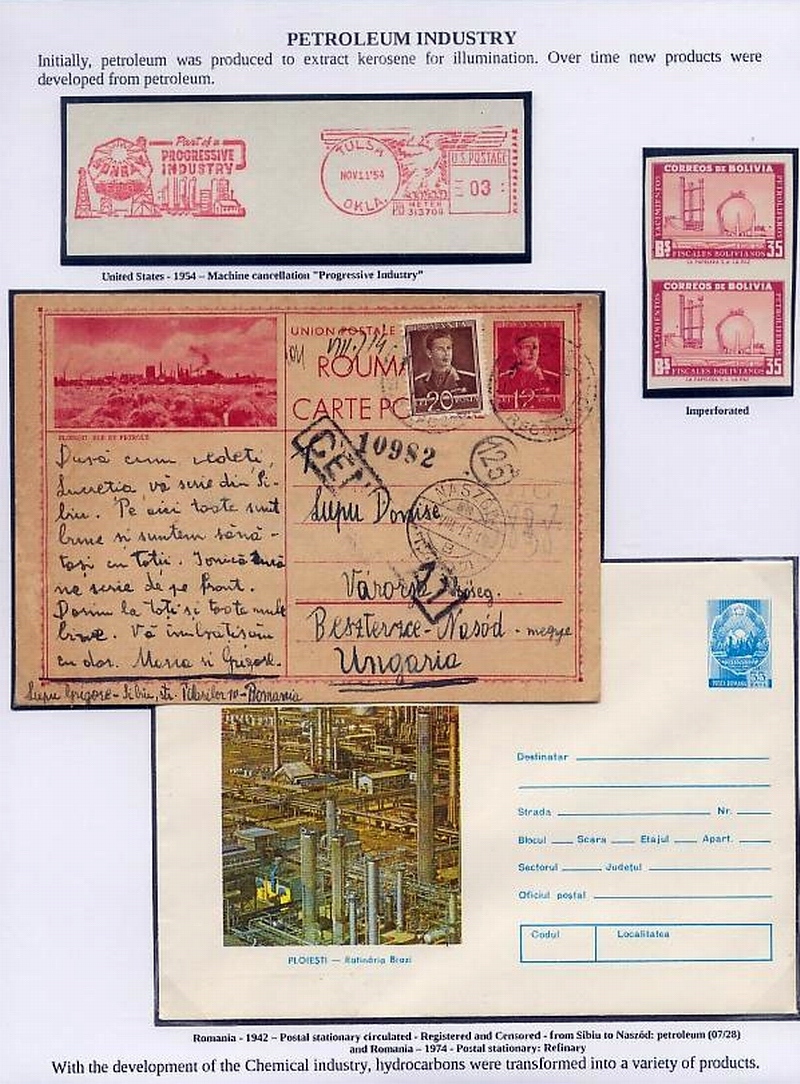 PETROLEUM INDUSTRY
Initially, petroleum was produced to extract kerosene for illumination. Over time new products were
developed from petroleum.
SUNRAY
Part of a
PROGRESSIVE
INDUSTRY
TULSA
NOV 11 '54
OKLA.
U.S. POSTAGE
03
METER
PB 313706
United States - 1954 – Machine cancellation "Progressive Industry"
CORREOS DE BOLIVIA
YACIMIENTOS
PETROLIFEROS
Bs 35
FISCALES BOLIVIANOS
LA PAPELERA S.A. LA PAZ
CORREOS DE BOLIVIA
YACIMIENTOS
PETROLIFEROS
Bs 35
FISCALES BOLIVIANOS
LA PAPELERA S.A. LA PAZ
Imperforated
UNION POSTALE
ROUMA
CARTE PO
ROMANIA
20
12
CEN
10982
123
NASZÓD
După cum vedeți,
Lucreția vă scrie din Si-
biu. Pe aici toate sunt
bune și suntem sănă-
toși cu toții. Ionică încă
ne scrie de pe front.
Dorim la toți și toate mult
bine. Vă îmbrățișăm
cu dor. Maria și Grigore.
Lupu Grigore - Sibiu, str. Pilarilor 10 - Romania
Lupu Donise
17
Beszterce-Nasód - megye
Ungaria
POSTA ROMANA
55
PLOIEȘTI — Rafinăria Brazi
Destinatar
Strada Nr.
Blocul Scara Etajul Apart.
Sectorul Județul
Oficiul poștal
Codul Localitatea
Romania - 1942 – Postal stationary circulated - Registered and Censored - from Sibiu to Naszód: petroleum (07/28)
and Romania – 1974 - Postal stationary: Refinary
With the development of the Chemical industry, hydrocarbons were transformed into a variety of products.